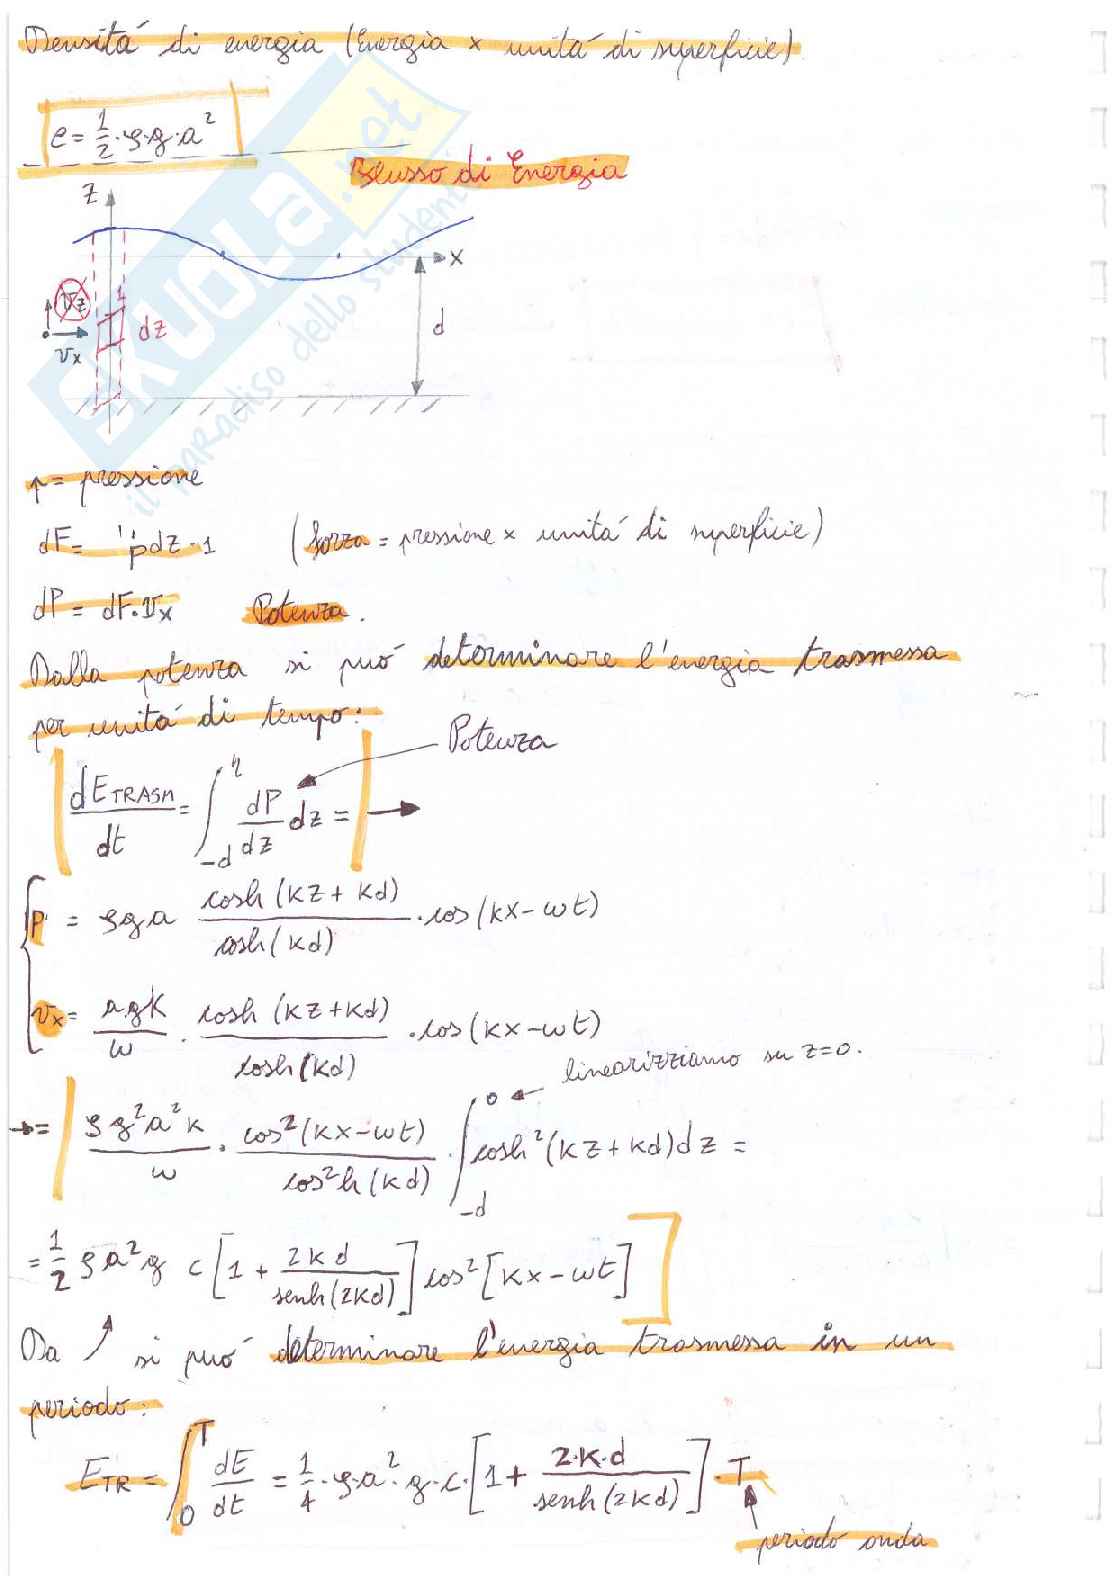 Densità di energia (Energia x unità di superficie)
e = 1/2 · ρ · g · a²
Flusso di Energia
z
x
Vz
1
dz
Vx
d
SKUOLA.net
il paradiso dello studente
p = pressione
dF = p dz · 1 (forza = pressione x unità di superficie)
dP = dF · Vx Potenza.
Dalla potenza si può determinare l'energia trasmessa
per unità di tempo:
Potenza
dE_TRASM/dt = ∫_{-d}^{η} dP/dz dz = | →
p = ρga cosh(kz+kd)/cosh(kd) · cos(kx-ωt)
vx = agk/ω · cosh(kz+kd)/cosh(kd) · cos(kx-ωt)
linearizziamo su z=0.
→ = ρg²a²k/ω · cos²(kx-ωt)/cos²h(kd) · ∫_{-d}^{0} cosh²(kz+kd)dz =
= 1/2 ρa²g c [1 + 2kd/senh(2kd)] cos²[kx-ωt]
Da ↗ si può determinare l'energia trasmessa in un
periodo:
E_TR = ∫_0^T dE/dt = 1/4 · ρ · a² · g · c · [1 + 2·k·d/senh(2kd)] · T
periodo onda